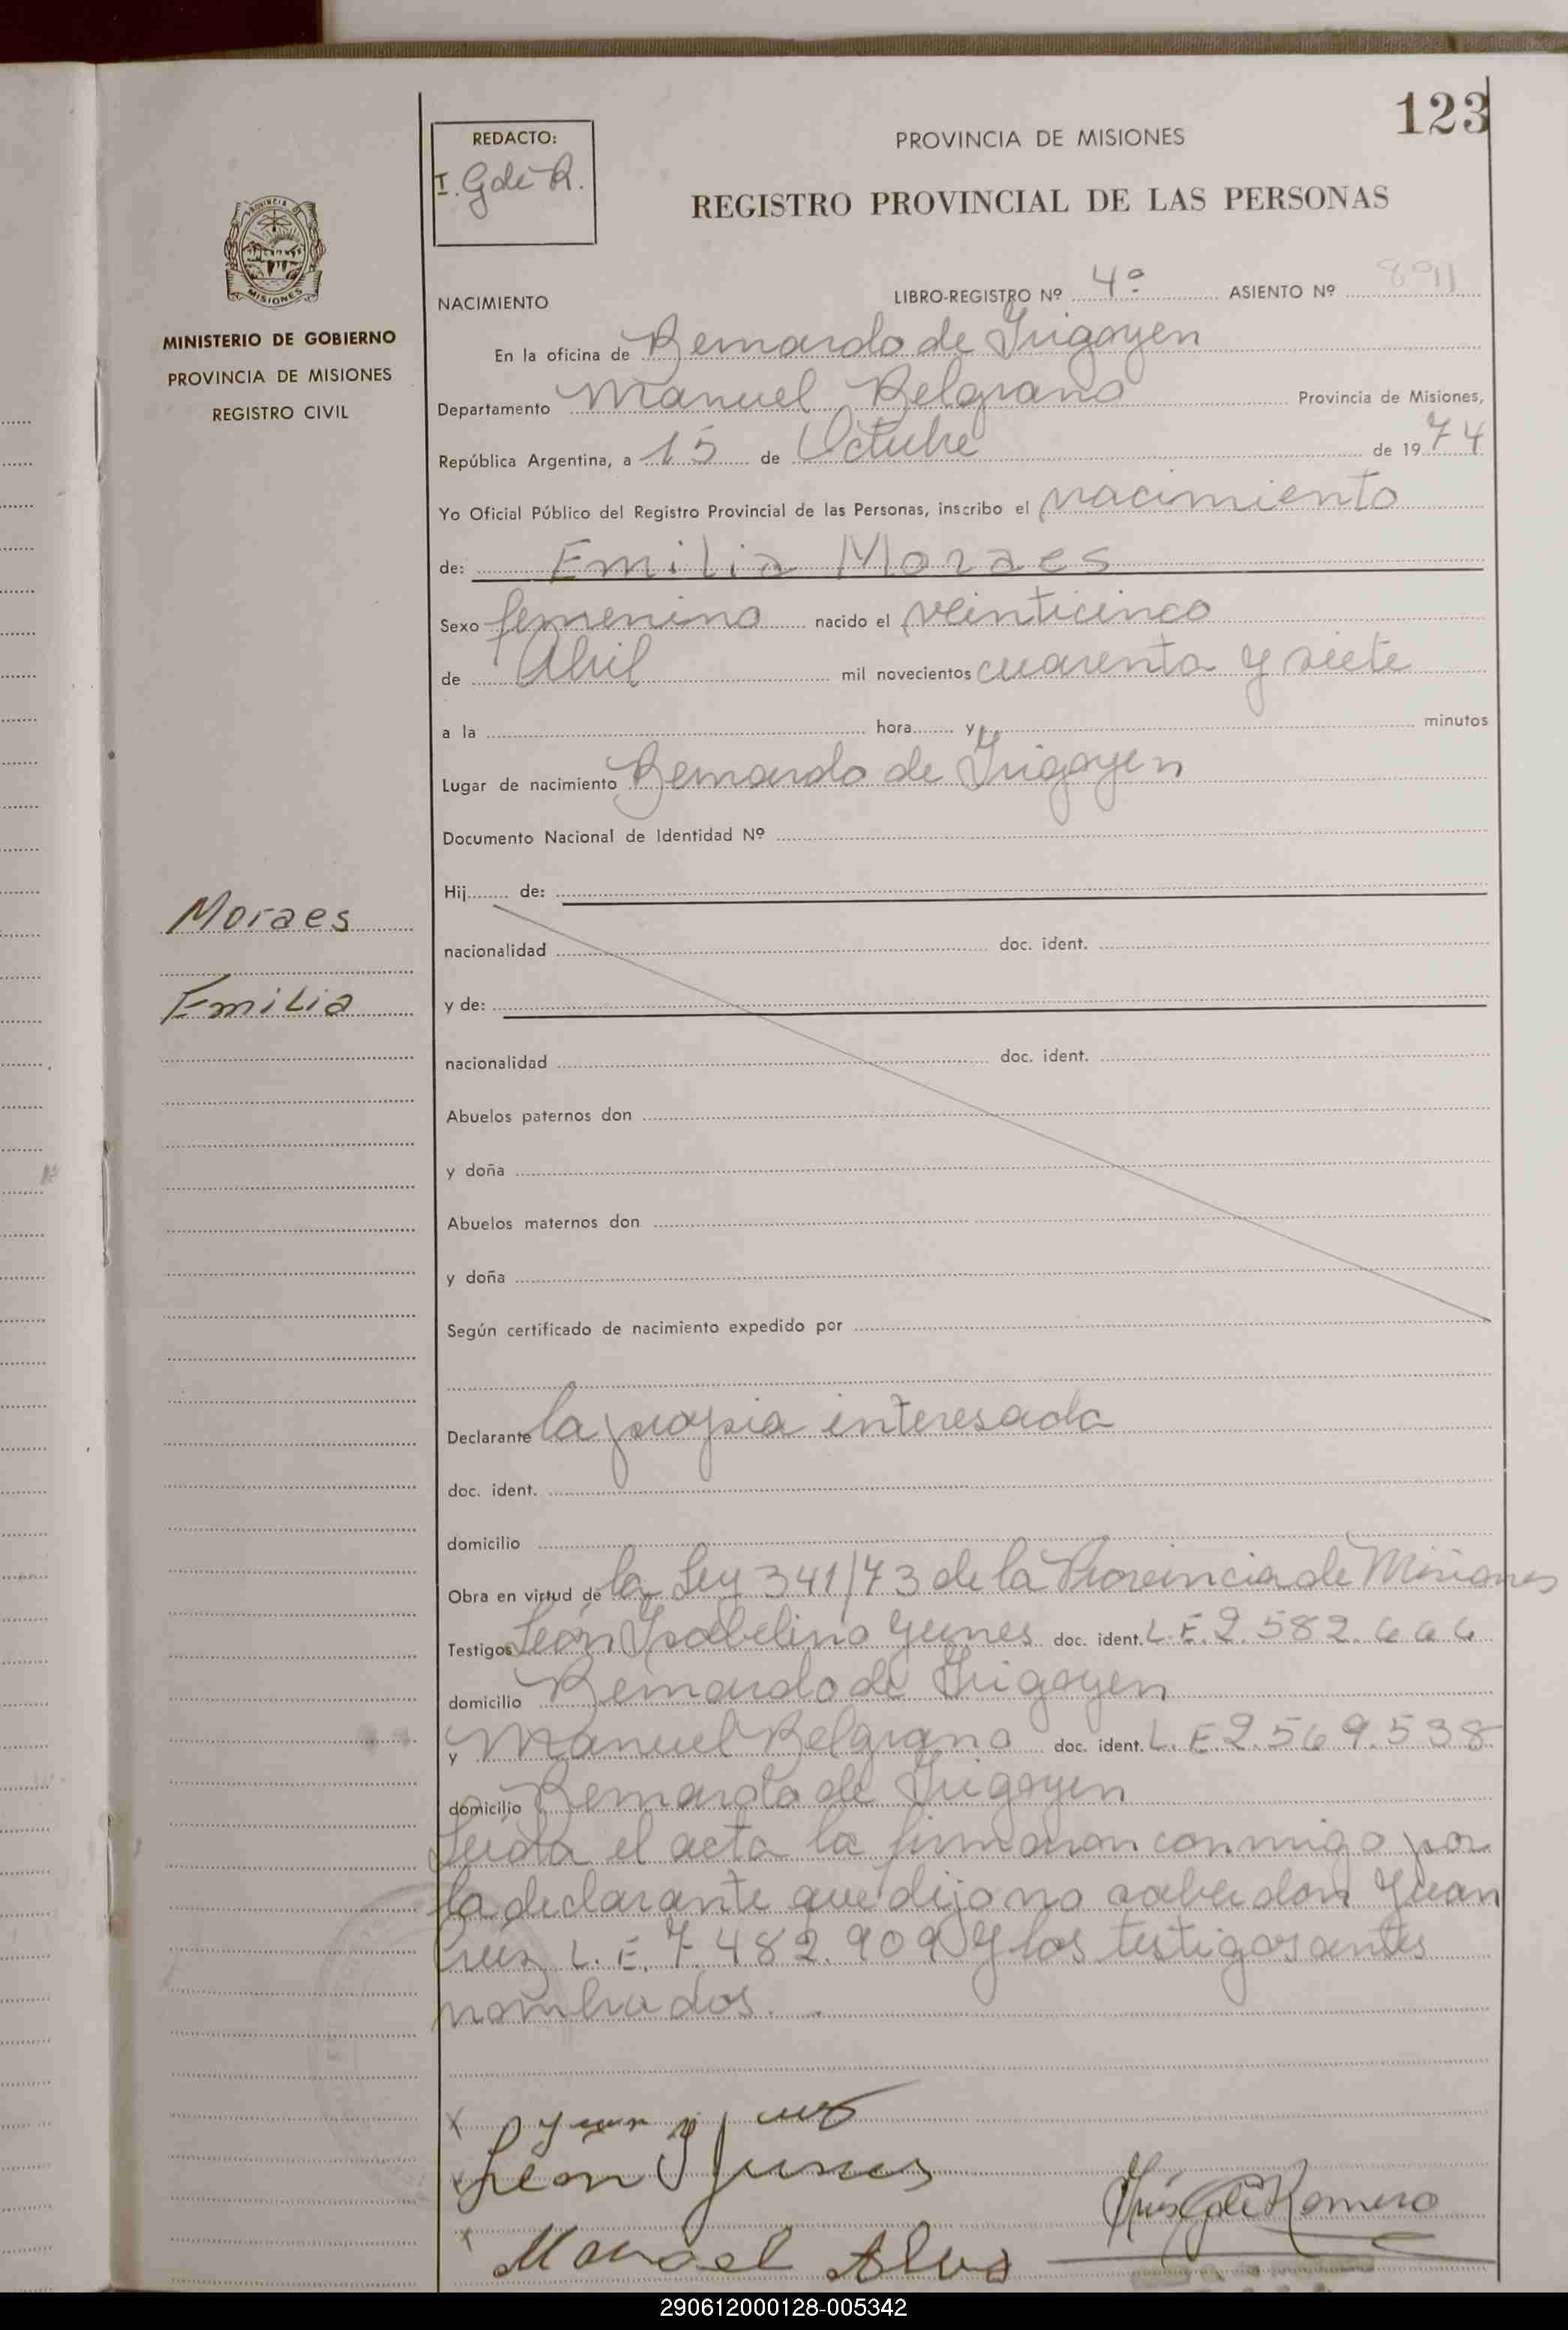 123
REDACTO:
I. G de R.
PROVINCIA DE MISIONES
REGISTRO PROVINCIAL DE LAS PERSONAS
MISIONES
MINISTERIO DE GOBIERNO
PROVINCIA DE MISIONES
REGISTRO CIVIL
NACIMIENTO LIBRO-REGISTRO Nº 4º ASIENTO Nº 891
En la oficina de Bernardo de Irigoyen
Departamento Manuel Belgrano Provincia de Misiones,
República Argentina, a 15 de Octubre de 1974
Yo Oficial Público del Registro Provincial de las Personas, inscribo el nacimiento
de: Emilia Moraes
Sexo femenino nacido el veinticinco
de Abril mil novecientos cuarenta y siete
a la hora y minutos
Lugar de nacimiento Bernardo de Irigoyen
Documento Nacional de Identidad Nº
Moraes
Emilia
Hij de:
nacionalidad doc. ident.
y de:
nacionalidad doc. ident.
Abuelos paternos don
y doña
Abuelos maternos don
y doña
Según certificado de nacimiento expedido por
Declarante la propia interesada
doc. ident.
domicilio
Obra en virtud de la Ley 341/73 de la Provincia de Misiones
Testigos León Ysabelino Yunes doc. ident. L.E. 2.582.666
domicilio Bernardo de Irigoyen
y Manuel Belgrano doc. ident. L.E 2.569.538
domicilio Bernardo de Irigoyen
Leida el acta la firmaron conmigo por
la declarante que dijo no saber don Juan
Cruz L.E. 7.482.909 y los testigos antes
nombrados.
x Juan Cruz
x León Y Junes
x Manoel Alves
Iris G de Romero
290612000128-005342